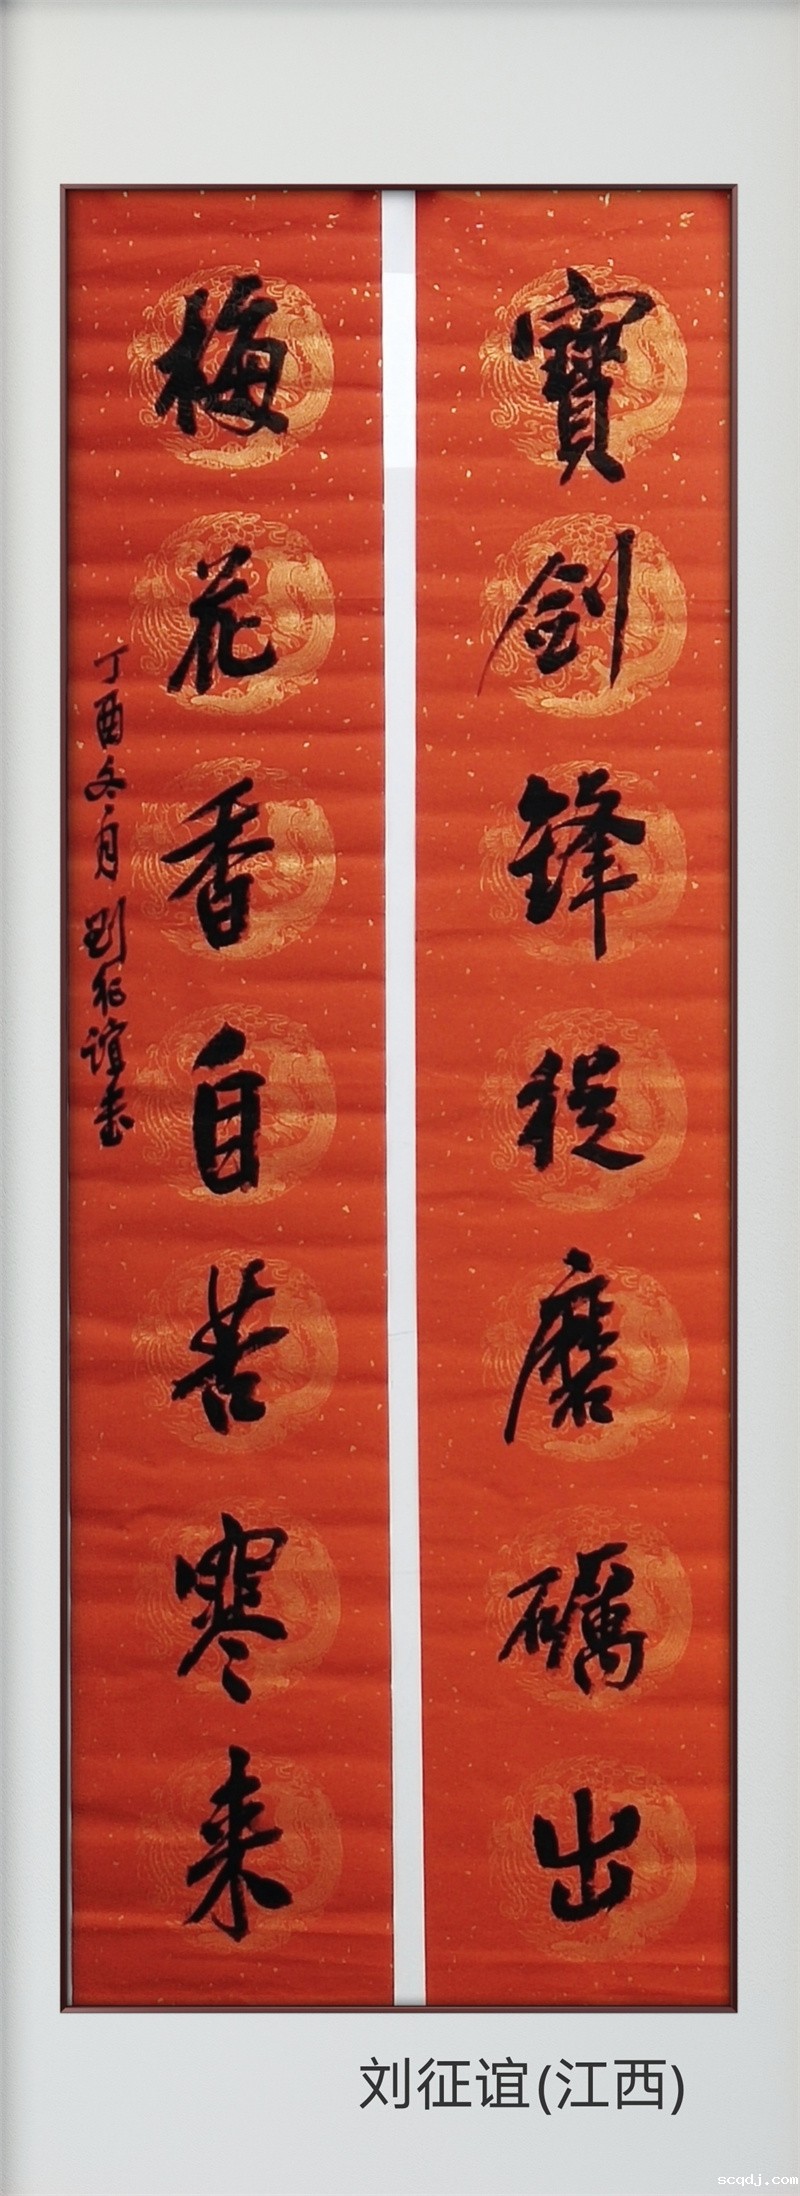 寶劍鋒從磨礪出
梅花香自苦寒来
丁酉冬月劉征誼書
刘征谊(江西)
scqdj.com